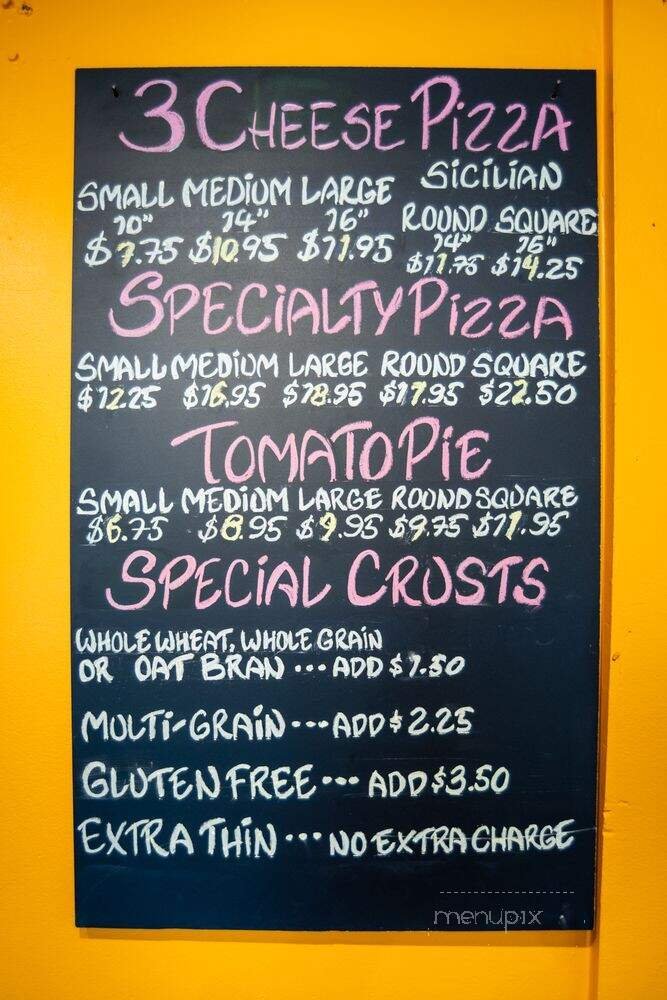 3 CHEESE PIZZA
SICILIAN
SMALL MEDIUM LARGE ROUND SQUARE
10" 14" 16" 14" 16"
$7.75 $10.95 $11.95 $11.75 $14.25
SPECIALTY PIZZA
SMALL MEDIUM LARGE ROUND SQUARE
$12.25 $16.95 $18.95 $17.95 $22.50
TOMATO PIE
SMALL MEDIUM LARGE ROUND SQUARE
$6.75 $8.95 $9.95 $9.75 $11.95
SPECIAL CRUSTS
WHOLE WHEAT, WHOLE GRAIN
OR OAT BRAN ... ADD $1.50
MULTI-GRAIN ... ADD $2.25
GLUTEN FREE ... ADD $3.50
EXTRA THIN ... NO EXTRA CHARGE
menupix